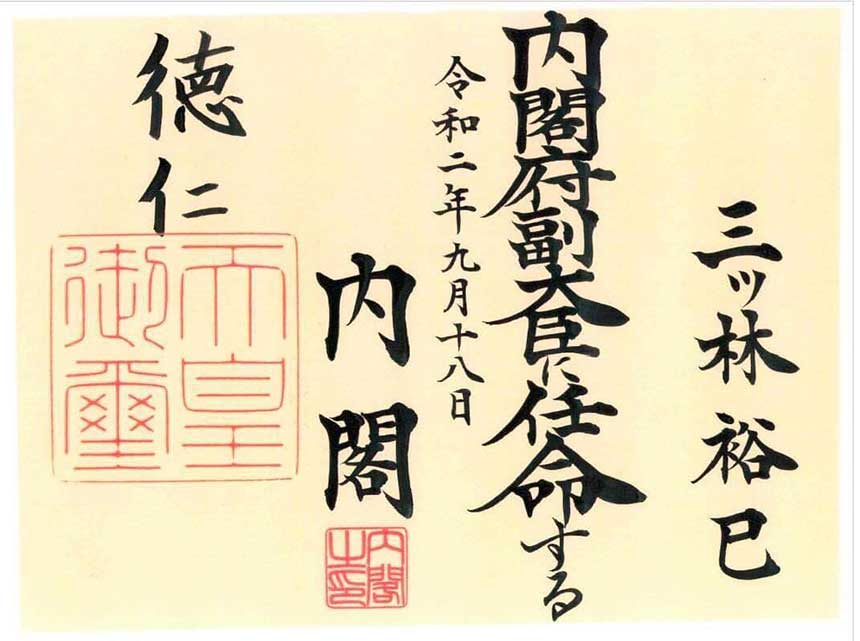 三ッ林裕巳
内閣府副大臣に任命する
令和二年九月十八日
内閣
内閣之印
徳仁
天皇御璽